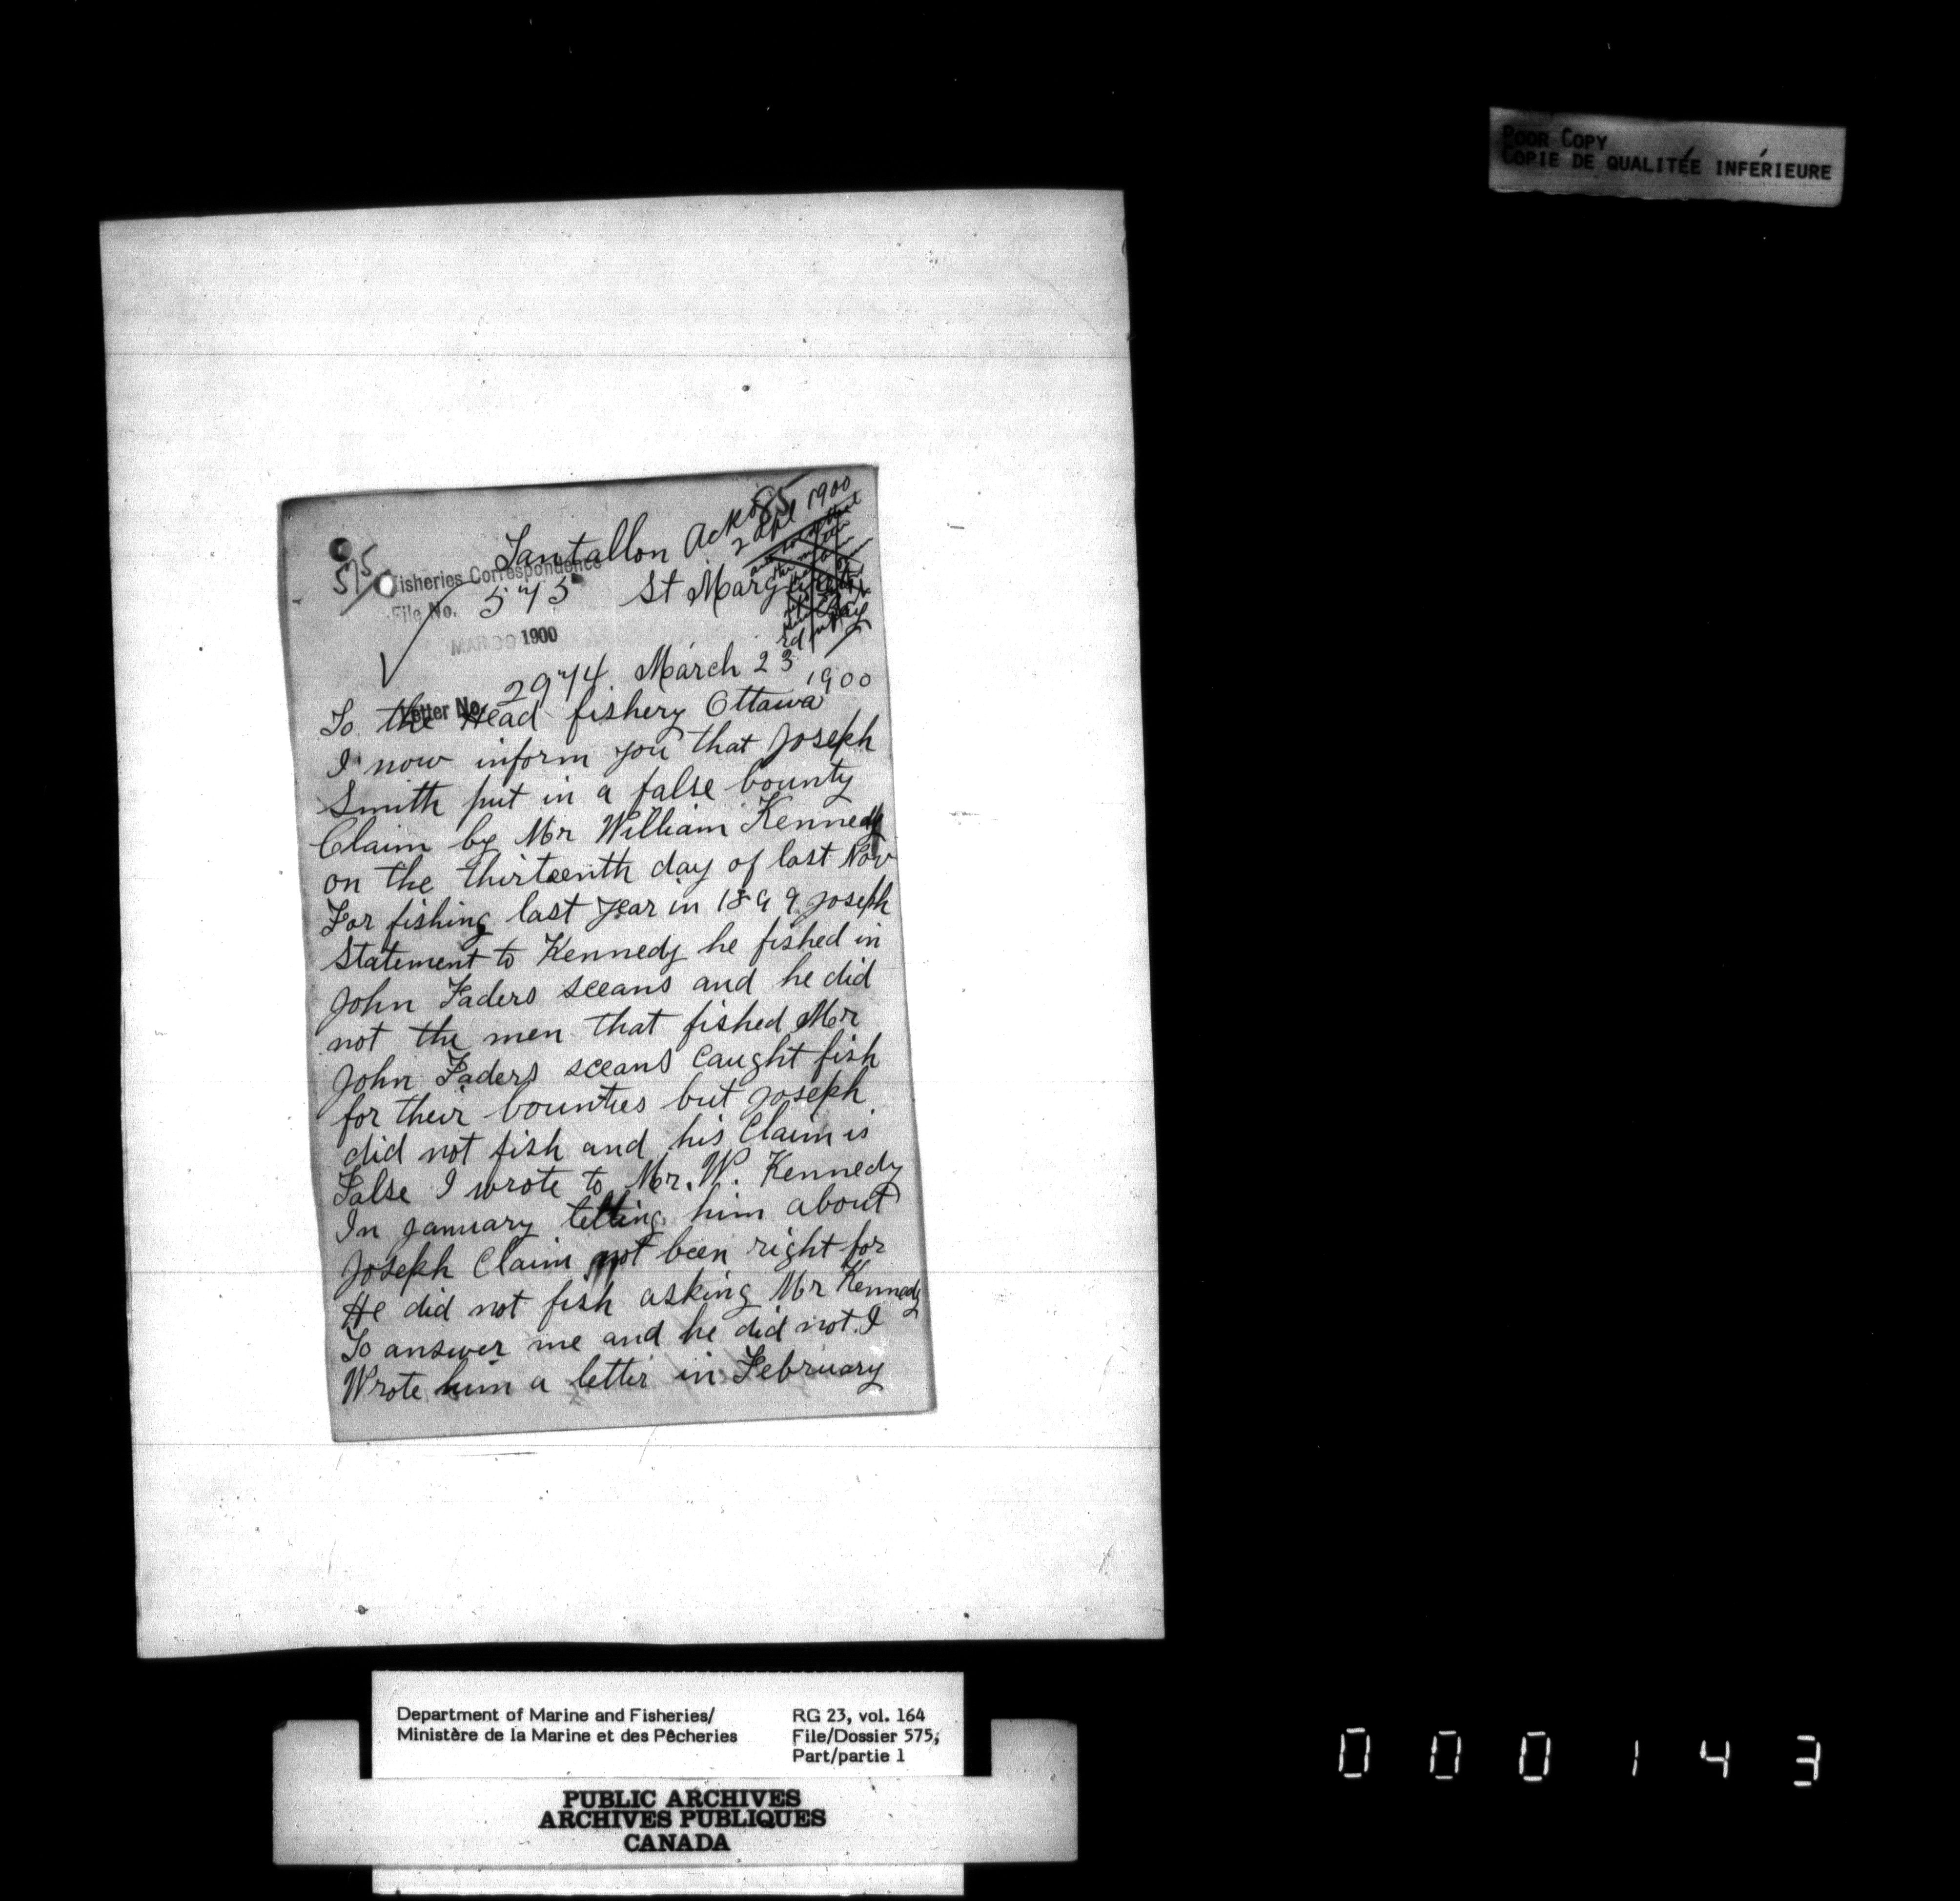 POOR COPY
COPIE DE QUALITÉE INFÉRIEURE
85
Tantallon Ackd
2 Apl 1900
575
Fisheries Correspondence
File No. 575
St Margrets
Bay
MAR 29 1900
March 23
1900
Letter No. 2974
To the Head fishery Ottawa
I now inform you that Joseph
Smith put in a false bounty
Claim by Mr William Kennedy
on the thirteenth day of last Nov
For fishing last year in 1899 Joseph
Statement to Kennedy he fished in
John Faders sceans and he did
not the men that fished Mr
John Faders sceans Caught fish
for their bounties but Joseph
did not fish and his Claim is
False I wrote to Mr. W. Kennedy
In January telling him about
Joseph Claim not been right for
He did not fish asking Mr Kennedy
To answer me and he did not. I
Wrote him a letter in February
Department of Marine and Fisheries/
Ministère de la Marine et des Pêcheries
RG 23, vol. 164
File/Dossier 575,
Part/partie 1
PUBLIC ARCHIVES
ARCHIVES PUBLIQUES
CANADA
000143